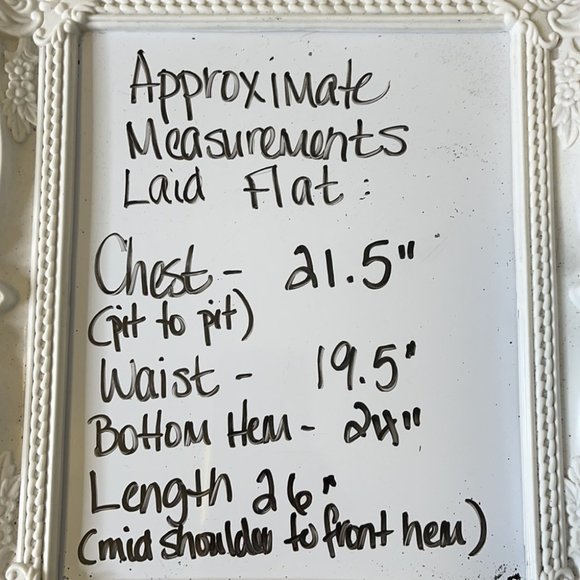 Approximate
Measurements
Laid Flat:
Chest - 21.5"
(pit to pit)
Waist - 19.5"
Bottom Hem - 24"
Length 26"
(mid shoulder to front hem)